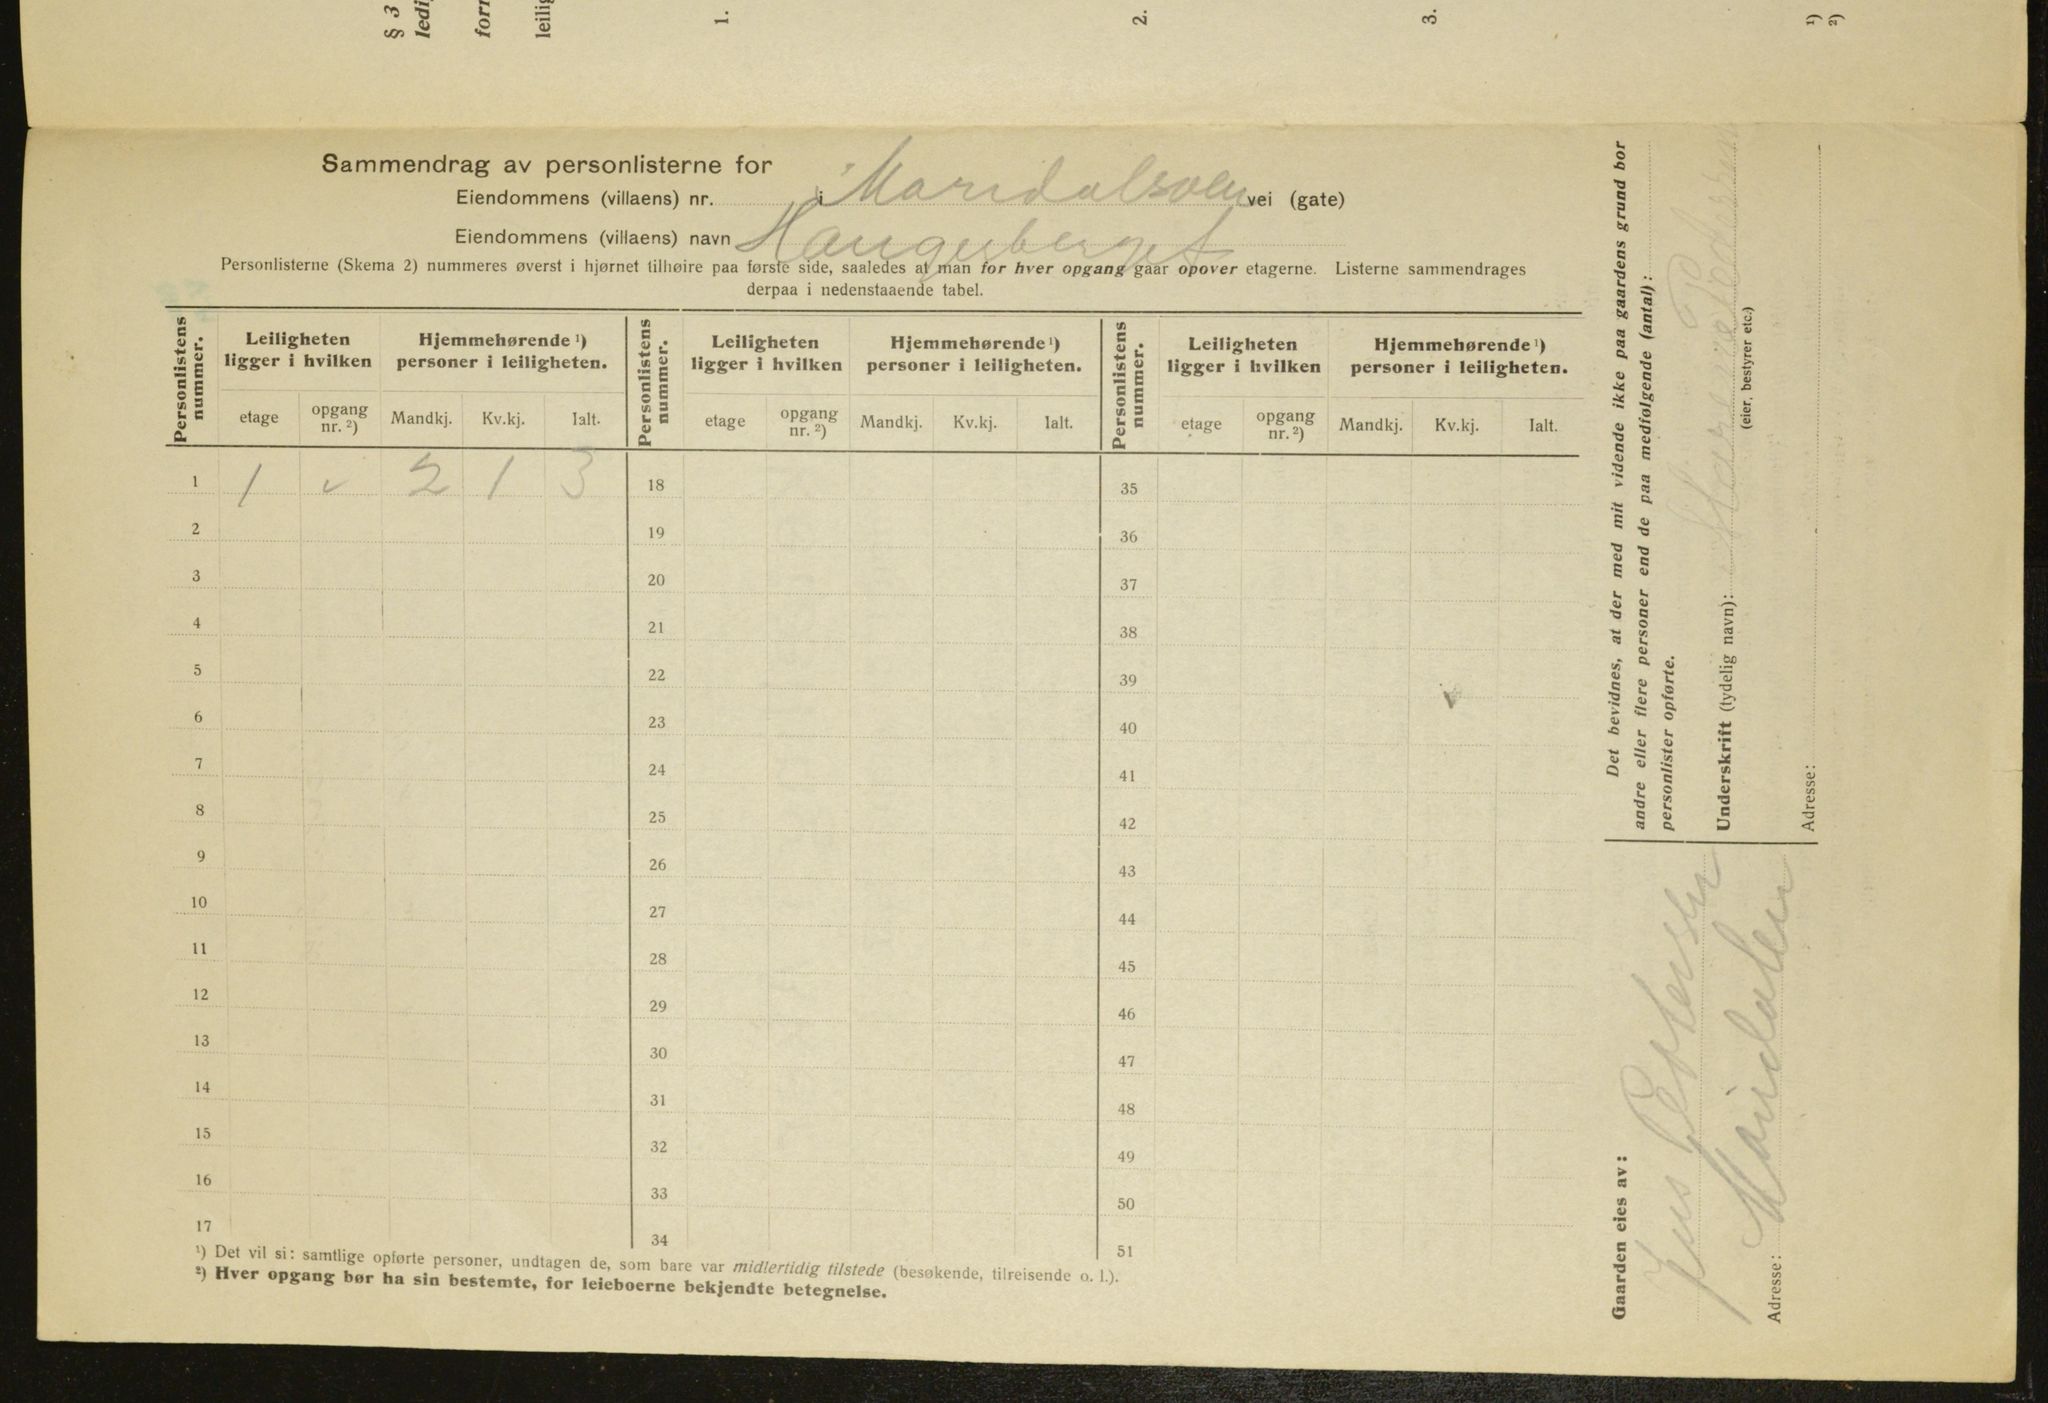 § 3
ledi
forr
leilig
1.
2.
3.
¹)
²)
Sammendrag av personlisterne for
Eiendommens (villaens) nr. i Maridalsveien vei (gate)
Eiendommens (villaens) navn Haugerberget
Personlisterne (Skema 2) nummeres øverst i hjørnet tilhøire paa første side, saaledes at man for hver opgang gaar opover etagerne. Listerne sammendrages
derpaa i nedenstaaende tabel.
Personlistens nummer. Leiligheten ligger i hvilken Hjemmehørende ¹) personer i leiligheten. Personlistens nummer. Leiligheten ligger i hvilken Hjemmehørende ¹) personer i leiligheten. Personlistens nummer. Leiligheten ligger i hvilken Hjemmehørende ¹) personer i leiligheten.
etage opgang nr. ²) Mandkj. Kv.kj. Ialt. etage opgang nr. ²) Mandkj. Kv.kj. Ialt. etage opgang nr. ²) Mandkj. Kv.kj. Ialt.
1 1 2 1 3 18 35
2 19 36
3 20 37
4 21 38
5 22 39
6 23 40
7 24 41
8 25 42
9 26 43
10 27 44
11 28 45
12 29 46
13 30 47
14 31 48
15 32 49
16 33 50
17 34 51
¹) Det vil si: samtlige opførte personer, undtagen de, som bare var midlertidig tilstede (besøkende, tilreisende o. l.).
²) Hver opgang bør ha sin bestemte, for leieboerne bekjendte betegnelse.
Det bevidnes, at der med mit vidende ikke paa gaardens grund bor
andre eller flere personer end de paa medfølgende (antal):
personlister opførte.
Underskrift (tydelig navn):
(eier, bestyrer etc.)
Adresse:
Gaarden eies av:
Jens Pettersen
Adresse: Maridalen